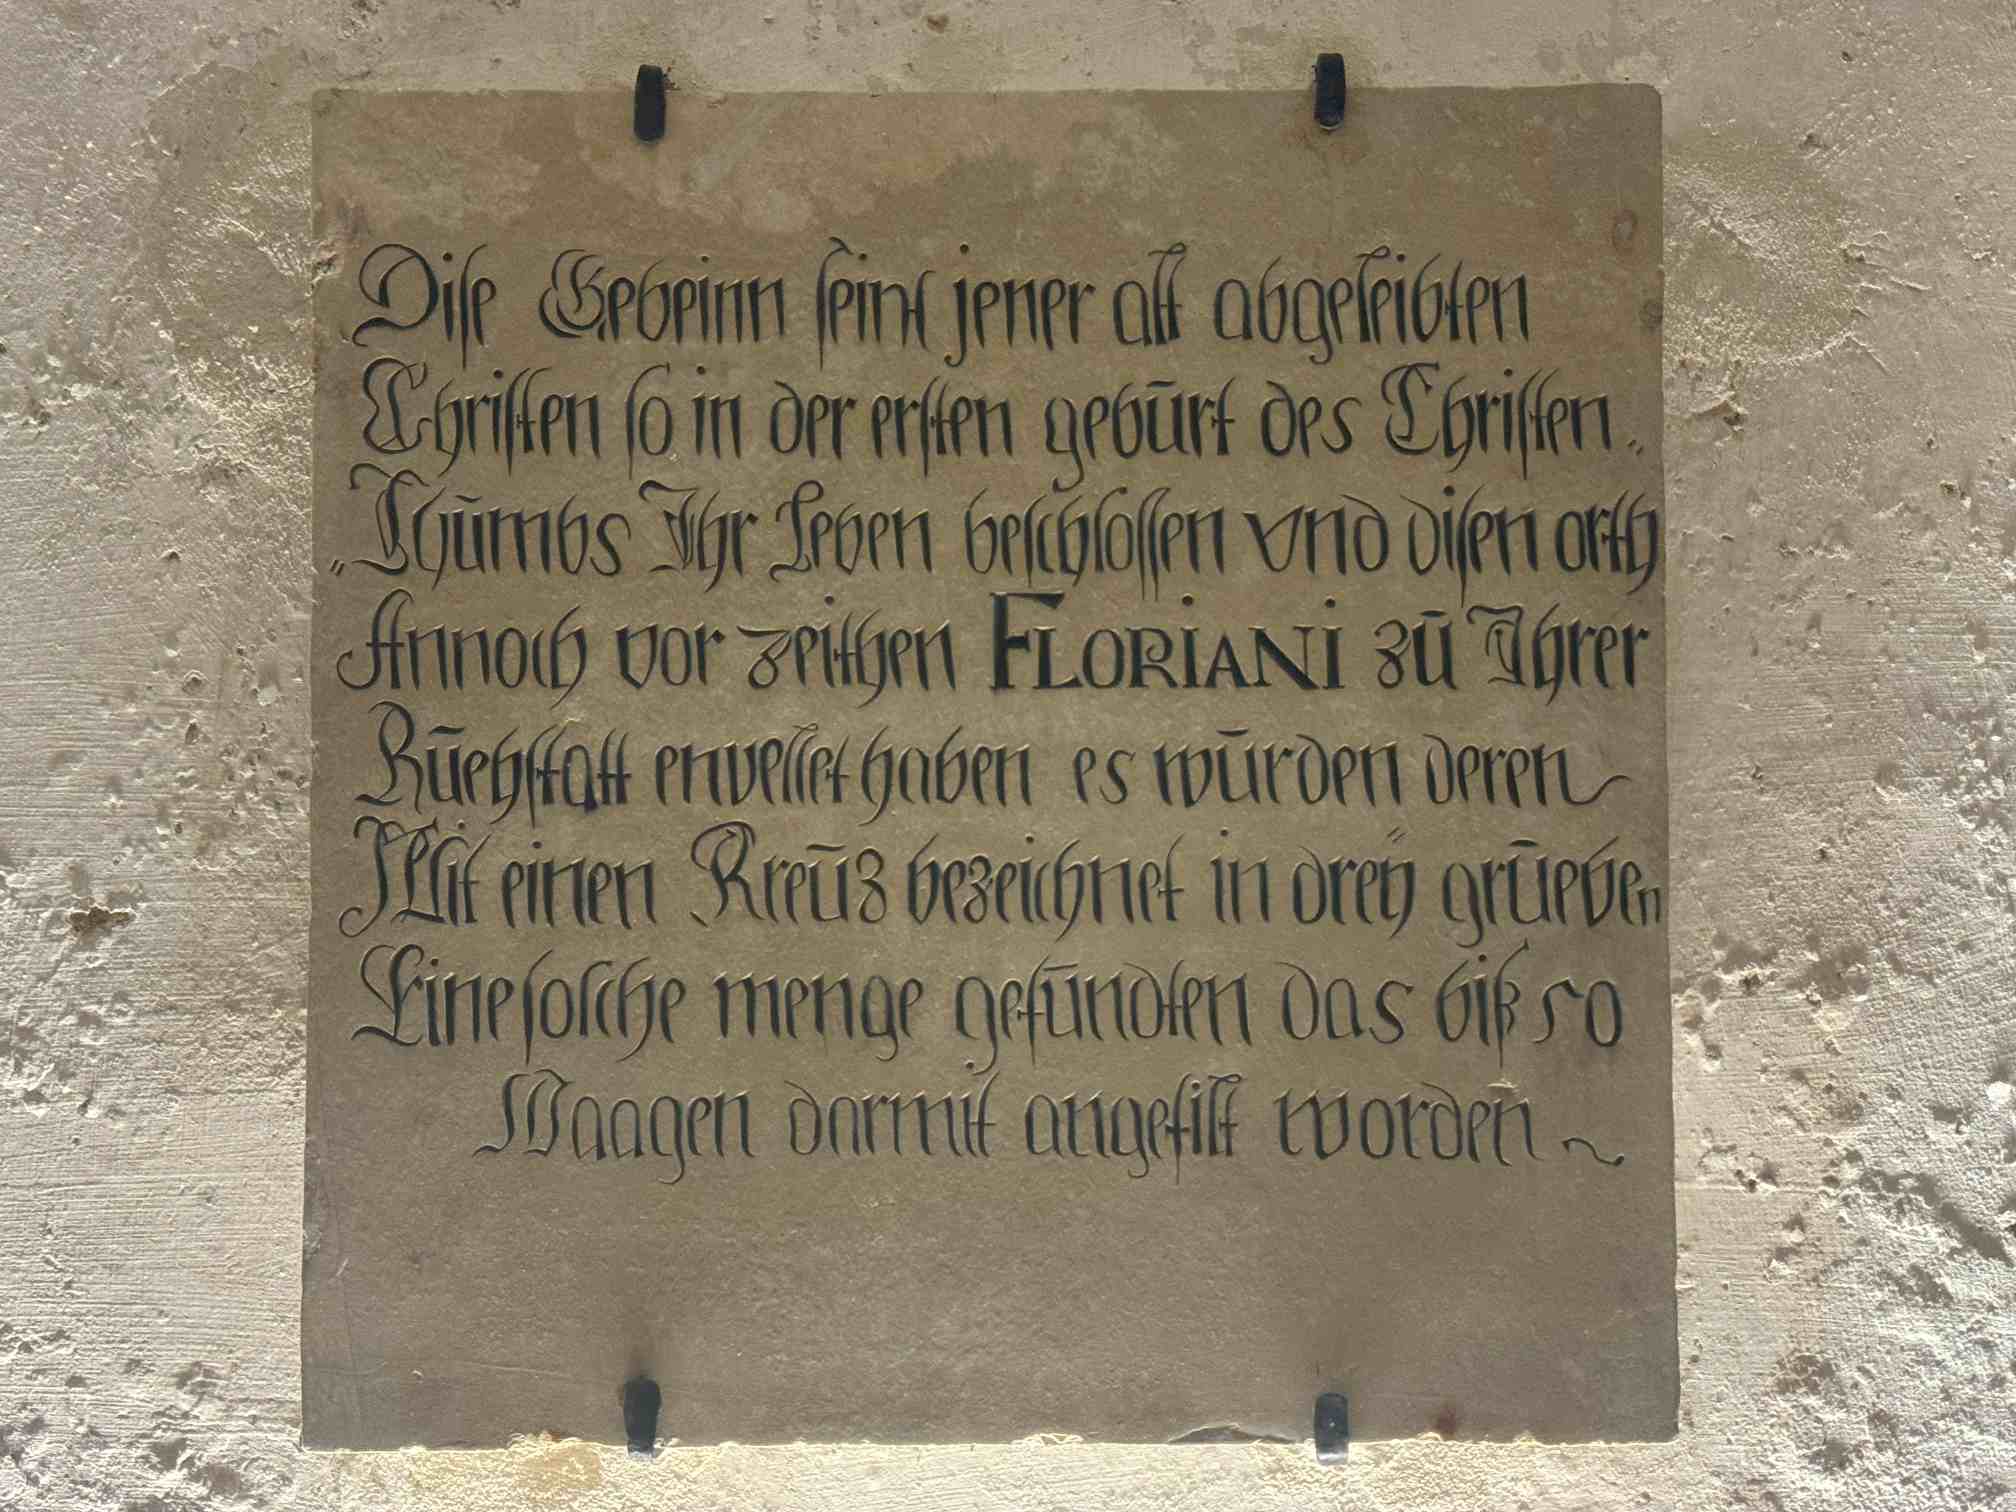 Dise Gebeinn seint jener alt abgeleibten
Christen so in der ersten gebūrt des Christen„
„Thūmbs Ihr Leben beschlossen vnd disen orth
Annoch vor zeithen FLORIANI zū Ihrer
Rūehstatt erwellet haben es wūrden deren
Mit einen Kreūz bezeichnet in dreÿ grūeben
Eine solche menge gefūndten das biß 50
Waagen darmit angefilt worden ~